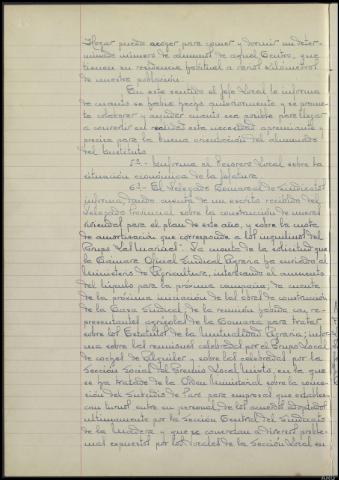 Hogar pueda acoger para comer y dormir un deter-
minado número de alumnos de aquel Centro, que
tienen su residencia habitual a varios kilómetros
de nuestra población.
En este sentido el Jefe Local le informa
de cuanto se había hecho anteriormente y se prome-
te colaborar y ayudar cuanto sea posible para llegar
a convertir en realidad esta necesidad apremiante y
precisa para la buena orientación del alumnado
del Instituto.
5º.- Informa el Tesorero Local sobre la
situación económica de la Jefatura.
6º.- El Delegado Comarcal de Sindicatos
informa, dando cuenta de un escrito recibido del
Delegado Provincial sobre la construcción de nuevas
viviendas para el plan de este año, y sobre la cuota
de amortización que corresponde a los inquilinos del
Grupo "La Huariza". Da cuenta de la solicitud que
la Cámara Oficial Sindical Agraria ha enviado al
Ministerio de Agricultura, interesando el aumento
del cupo para la próxima campaña; da cuenta
de la próxima iniciación de las obras de construcción
de la Casa Sindical, de la reunión habida con re-
presentantes agrícolas de la Comarca para tratar
sobre los Estatutos de la Mutualidad Agraria; infor-
ma sobre las reuniones celebradas por el Grupo Local
de coches de Alquiler y sobre las celebradas por la
Sección Social del Gremio Local Mixto, en la que
se ha tratado de la Orden Ministerial sobre la conce-
sión del Subsidio de Paro para empresas que estable-
can turnos entre su personal, de los acuerdos adoptados
ultimamente por la Sección Central del Sindicato
de la Madera y que se concretan a diversos proble-
mas expuestos por los vocales de la Sección Local en